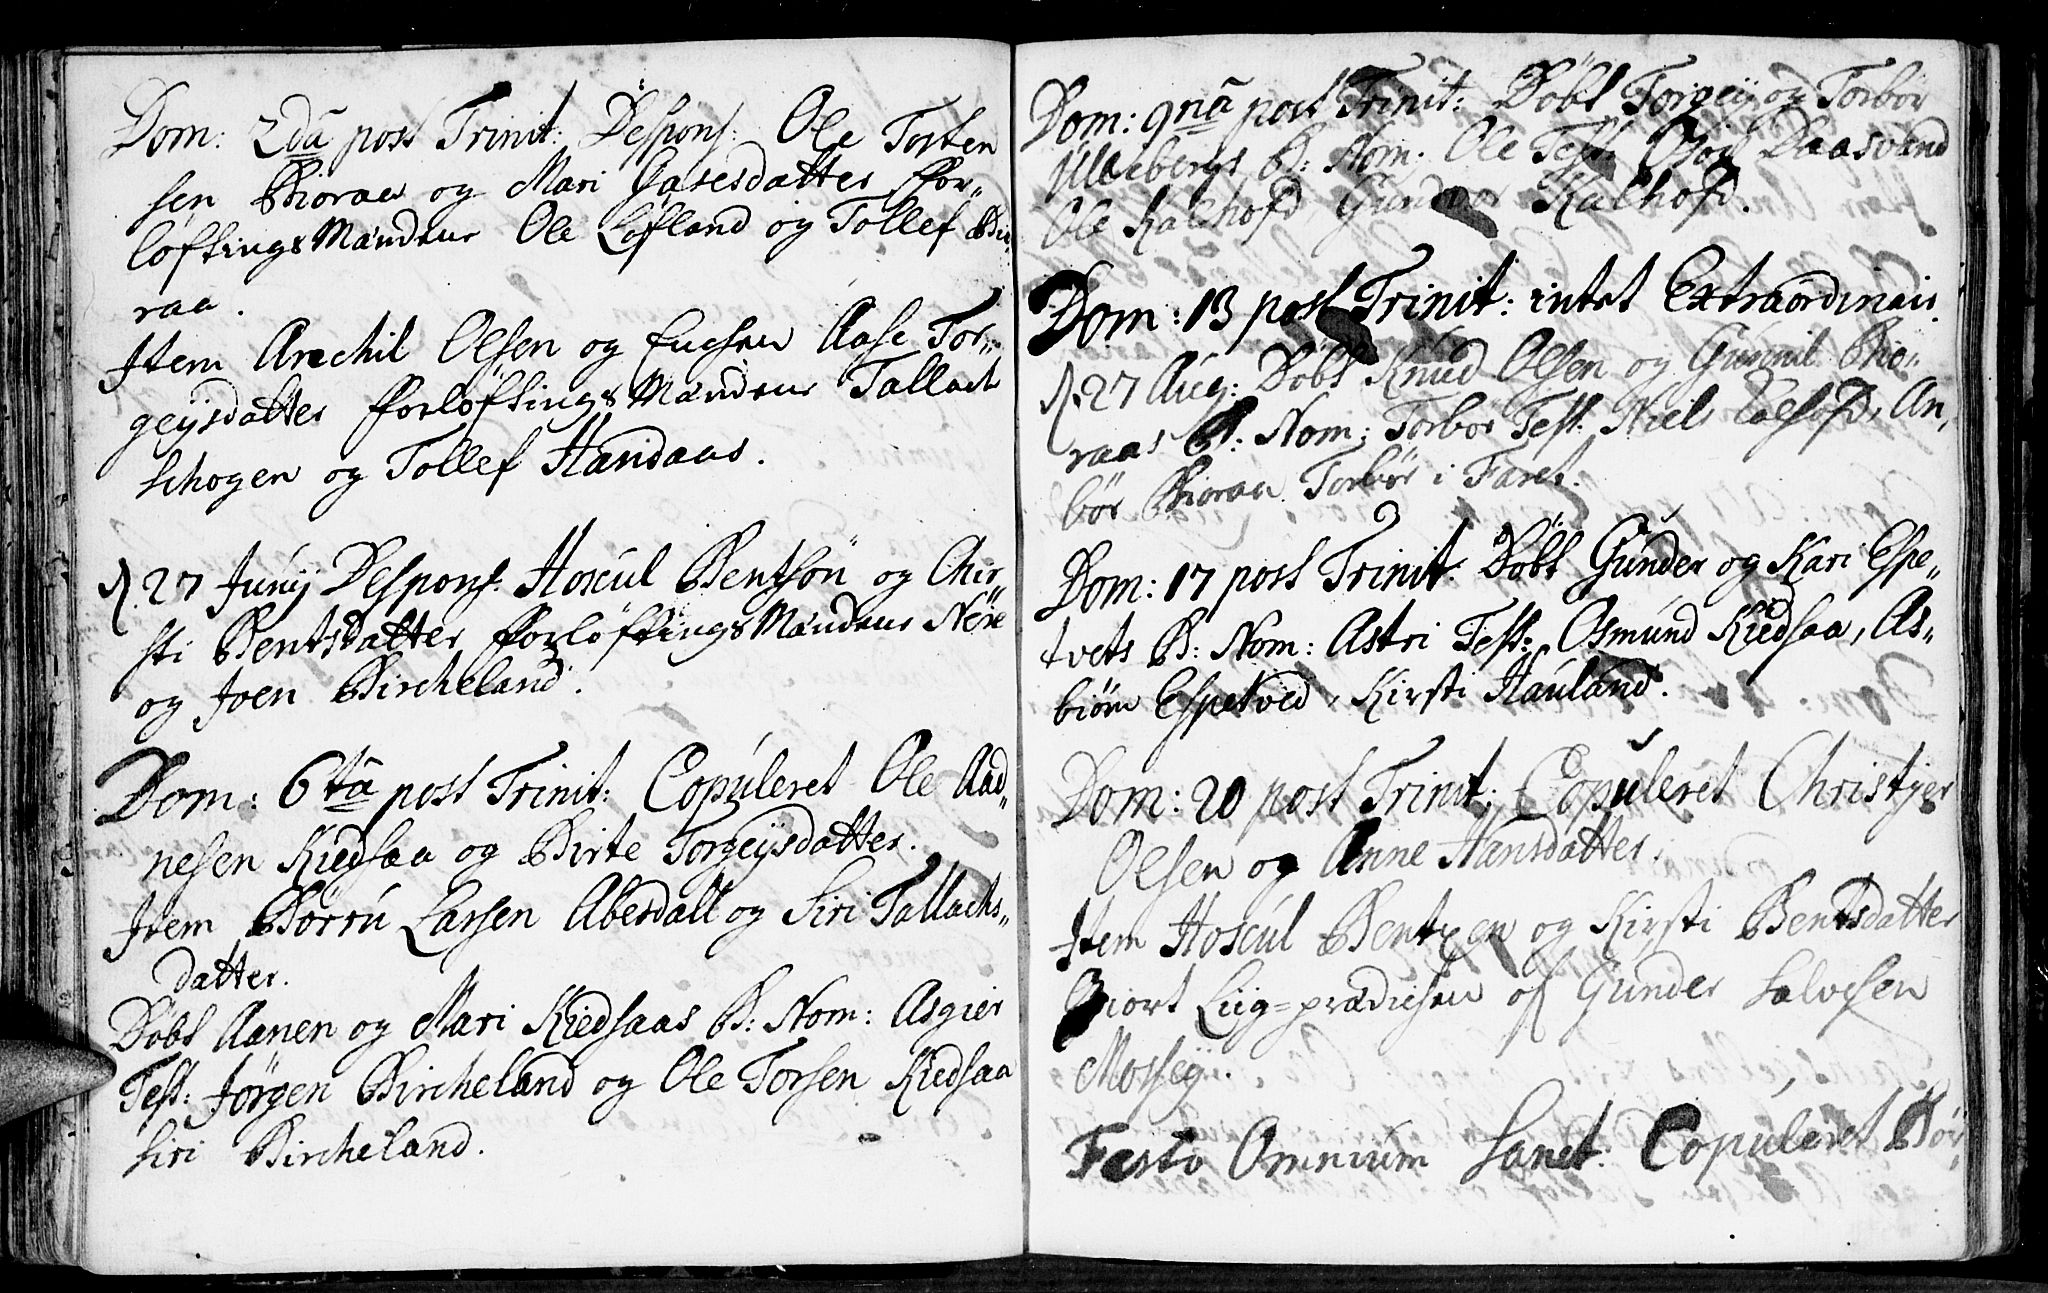 Dom: 2da post Trinit: Despons: Ole Tosten
sen Bioraa og Mari Gasesdatter ffor„
løftings Mændene Ole Løfland og Tollef Bio„
raa.
Item Arachil Olsen og Enchen Aase Tor„
geijsdatter fforløftings Mændene Tallack
schogen og Tollef Handaas.
d. 27 Junij Despons: Hoscul Bentsøn og Chir„
sti Bentsdatter fforløftings Mændene Nere
og Joen Bircheland.
Dom: 6ta post Trinit: Copuleret Ole Aad„
nesen Kiedsaa og Birte Torgeijsdatter.
Item Børru Larsen Abesdall og Siri Tallachs„
datter.
Døbt Aanen og Mari Kiedsaas B: Nom: Asgier
Test: Jørgen Bircheland og Ole Torsen Kiedsaa
Siri Bircheland.
Dom: 9na post Trinit: Døbt Torgeij og Torbor
Ulleebergs B: Nom. Ole Test: Daasvand
Ole Kalhofd, Gunvor Kalhofd.
Dom: 13 post Trinit: intet Extraordinair.
d. 27 Aug: Døbt Knud Olsen og Gunnil Bio„
raas B: Nom: Torbor Test: Niel, An„
bør Bioraa Torbør i Faret.
Dom: 17 post Trinit: Døbt Gunder og Kari Espe„
tvets B: Nom: Astri Test: Osmund Kiedsaa, As„
biørn Espetved, Kirsti Hauland.
Dom: 20 post Trinit: Copuleret Christjer
Olsen og Anne Hansdatter.
Item Hoscul Bentzen og Kirsti Bentsdatter
Giort Liig=prædichen of Gunder Salvesen
Mosseij.
Festo Omnium Sanct: Copuleret Bør„